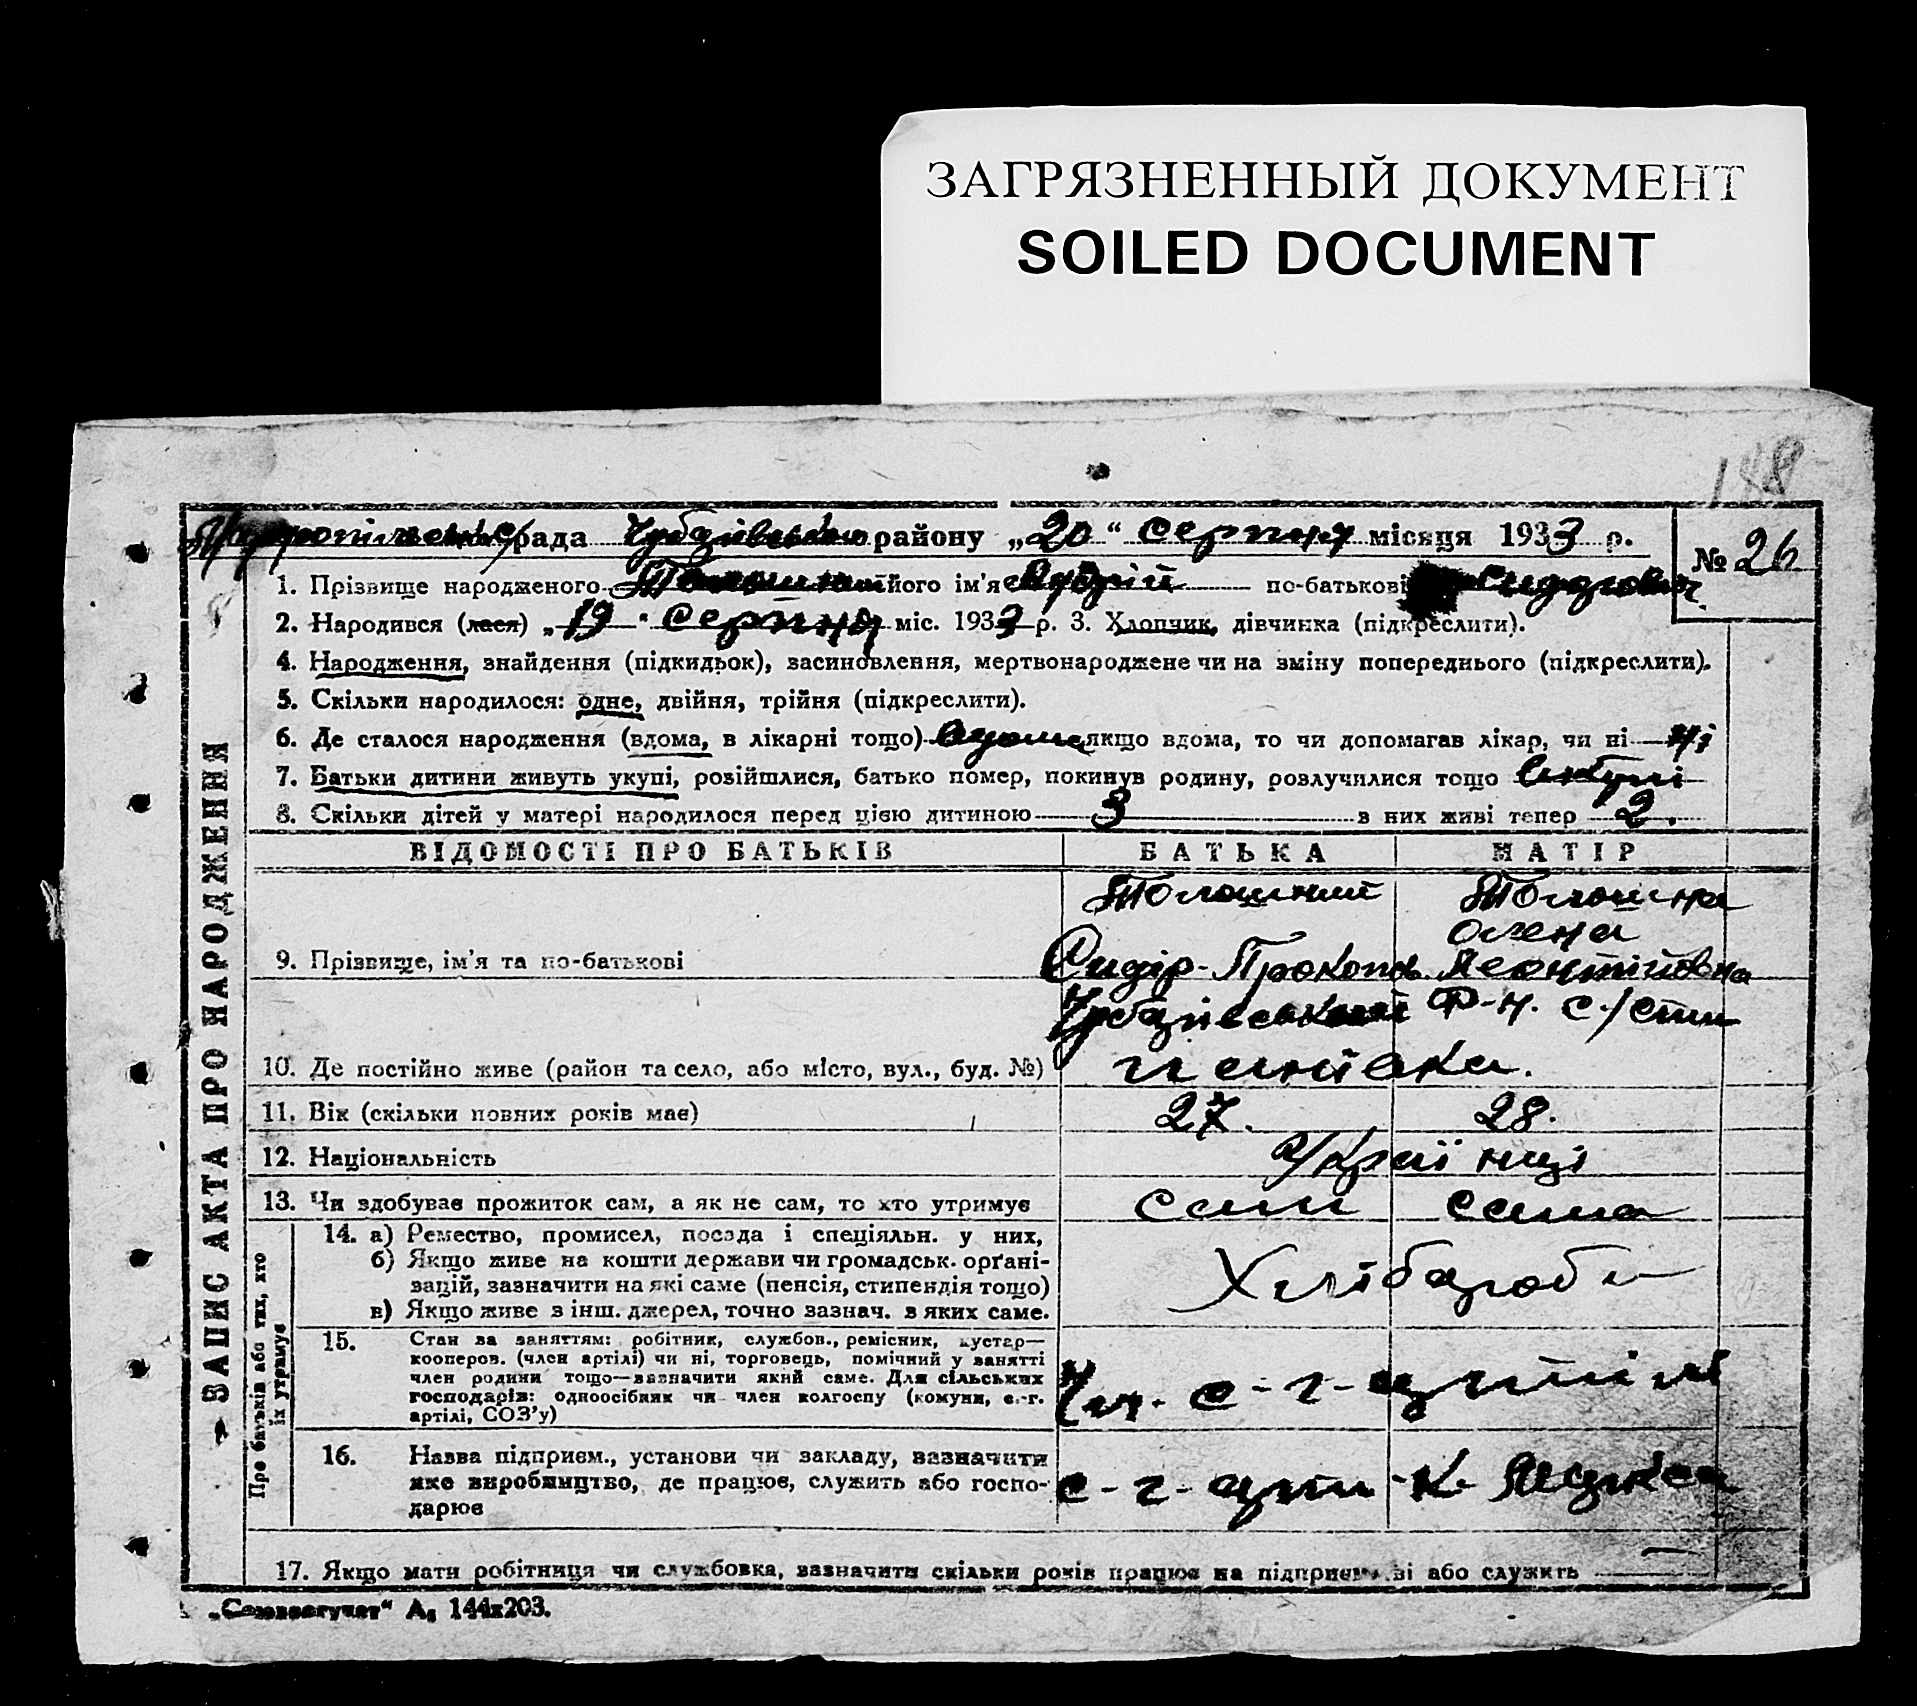 ЗАГРЯЗНЕННЫЙ ДОКУМЕНТ
SOILED DOCUMENT
148
с/рада Чубарівського району „20“ серпня місяця 1933 р.
№ 26
1. Прізвище народженого його ім'я Андрій по-батькові Сидорович
2. Народився (лася) „19“ серпня міс. 1933 р. 3. Хлопчик, дівчинка (підкреслити).
4. Народження, знайдення (підкидьок), засиновлення, мертвонароджене чи на зміну попереднього (підкреслити).
5. Скільки народилося: одне, двійня, трійня (підкреслити).
6. Де сталося народження (вдома, в лікарні тощо) вдома якщо вдома, то чи допомагав лікар, чи ні ні
7. Батьки дитини живуть укупі, розійшлися, батько помер, покинув родину, розлучилися тощо вкупі
8. Скільки дітей у матері народилося перед цією дитиною 3 в них живі тепер 2.
ВІДОМОСТІ ПРО БАТЬКІВ БАТЬКА МАТІР
Толошний Толошна
Олена
9. Прізвище, ім'я та по-батькові Сидір Прокопов. Леонтіївна
Чубарівський Р-н. с/
10. Де постійно живе (район та село, або місто, вул., буд. №)
11. Вік (скільки повних років має) 27. 28.
12. Національність Українці
13. Чи здобуває прожиток сам, а як не сам, то хто утримує сам сама
14. а) Ремество, промисел, посада і спеціяльн. у них,
б) Якщо живе на кошти держави чи громадськ. орґані-
зацій, зазначити на які саме (пенсія, стипендія тощо)
в) Якщо живе з інш. джерел, точно зазнач. з яких саме.
Хлібороби
15. Стан за заняттям: робітник, службов., ремісник, кустар—
кооперов. (член артілі) чи ні, торговець, помічний у занятті
член родини тощо—зазначити який саме. Для сільських
господарів: одноосібник чи член колгоспу (комуни, с.-г.
артілі, СОЗ'у)
Чл. с-г- артілі
16. Назва підприєм., установи чи закладу, зазначити
яке виробництво, де працює, служить або госпо-
дарює
с-г- арт
17. Якщо мати робітниця чи службовка, зазначити скільки років працює на підприємстві або служить —
ЗАПИС АКТА ПРО НАРОДЖЕННЯ
Про батьків або тих, хто
їх утримує
А₅ 144х203.